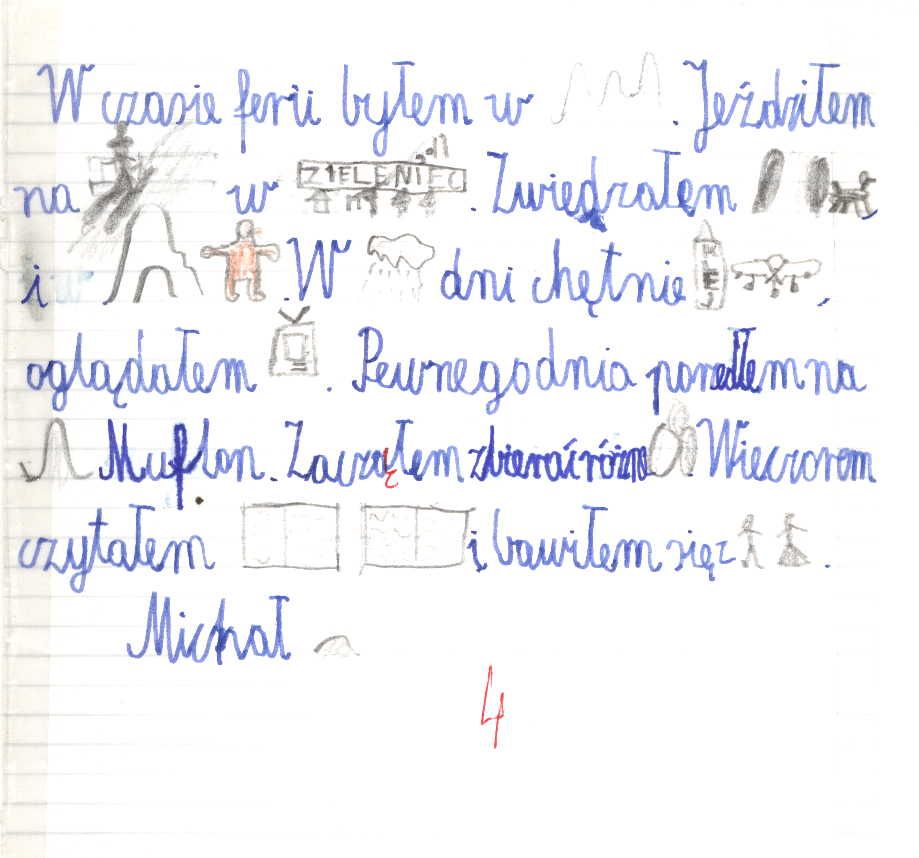 W czasie ferii byłem w . Jeździłem
na w ZIELENIEC . Zwiedzałem
i w . W dni chętnie KLEJ ,
oglądałem . Pewnego dnia poszedłem na
Muflon. Zacząłem zbierać różne Wieczorem
czytałem i bawiłem się z .
Michał
4